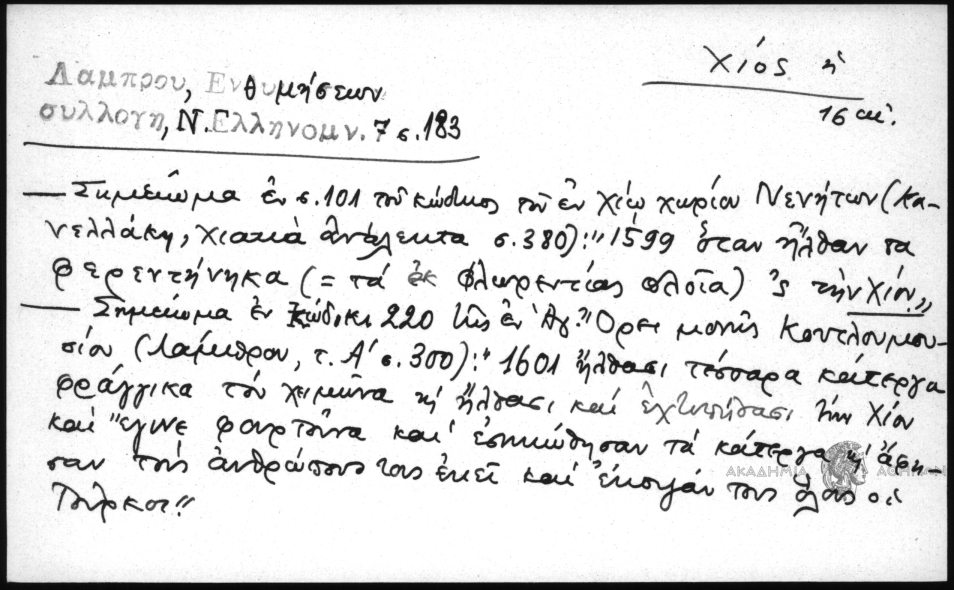 Χίος ἡ
16 αἰ.
Λαμπρου, Ενθυμήσεων
συλλογη, Ν. Ελληνομν. 7 σ. 183
— Σημείωμα ἐν σ. 101 τοῦ κώδικος τοῦ ἐν Χίῳ χωρίου Νενήτων (Κα-
νελλάκη, Χιακὰ ἀνάλεκτα σ. 380): "1599 ὅταν ἦλθαν τα
φερεντήνηκα (= τά ἐκ Φλωρεντίας πλοῖα) 'ς τὴν Χίον"
— Σημείωμα ἐν κώδικι 220 τῆς ἐν Ἁγ. Ὄρει μονῆς Κουτλουμου-
σίου (Λάμπρου, τ. Α' σ. 300): "1601 ἤλθασι τέσσαρα κάτεργα
φράγγικα τόν χειμῶνα κή ἤλθασι καί ἐχτυπήθασι τήν Χίον
καί ἔγινε φουρτοῦνα καί ἐσηκώθησαν τά κάτεργα κή ἀφη-
σαν τούς ἀνθρώπους τους ἐκεῖ καί ἔκοψάν τους ὅλους οἱ
Τοῦρκοι"
ΑΚΑΔΗΜΙΑ ΑΘΗΝΩΝ